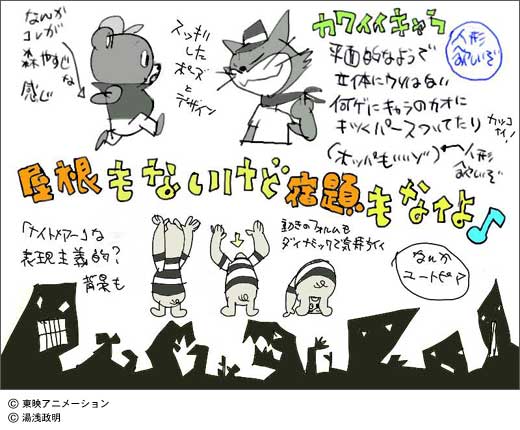 なんか
コレが
森やすじ
な
感じ
スッキリ
した
ポーズ
と
デザイン
カワイイキャラ
人形
欲しいぞ
平面的なようで
立体にウソはない
何ゲにキャラのカオに
キツくパースついてたり
カッコ
イイ!
(オッパもいいゾ)
人形
欲しいぞ
屋根もないけど宿題もないよ♪
「ナイトメアー」な
表現主義的?
背景も
動きのフォルムも
ダイナミックで気持ちイイ
なんか
ユートピア
© 東映アニメーション
© 湯浅政明